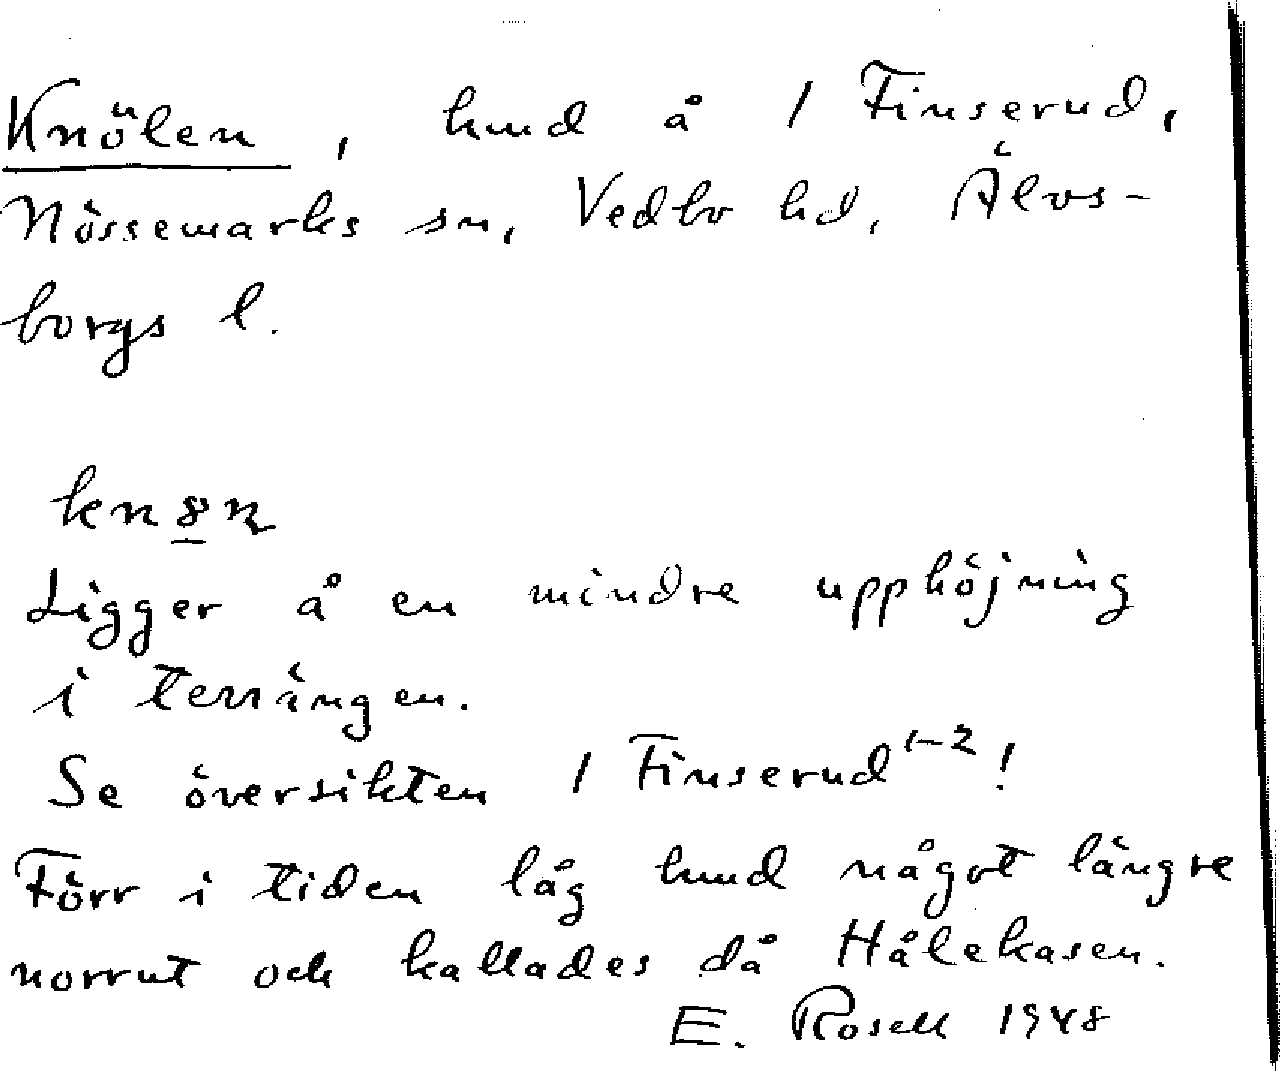 Knölen, hmd å 1 Finserud,
Nössemarks sn, Vedbo hd, Älvs-
borgs l.
Ligger å en mindre upphöjning
i terrängen.
Se översikten 1 Finserud 1-2!
Förr i tiden låg hmd något längre
norrut och kallades då Hålekasen.
E. Rosell 1948